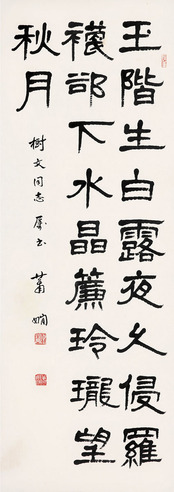 玉階生白露夜久侵羅
襪卻下水晶簾玲瓏望
秋月
樹文同志屬書 蕭嫻